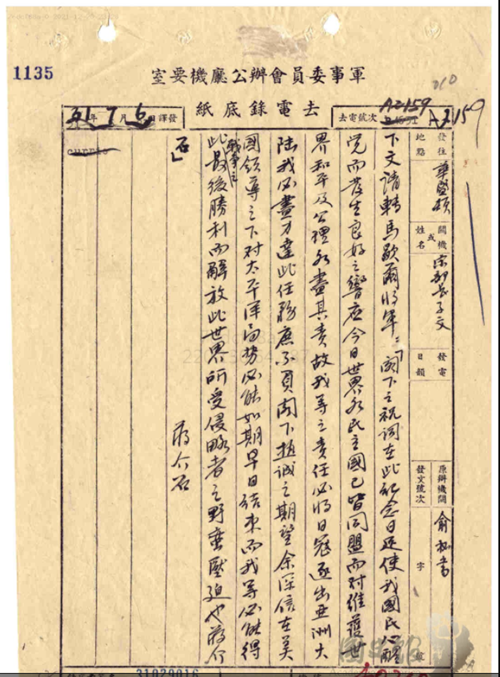 1135
軍事委員會辦公廳機要室
去電錄底紙
A2159
去電次號 A2159
31年7月6日發譯
發往地點 華盛頓
機關或姓名 宋部長子文
發電日韻
原辦機關發文號次 俞秘書 字
下文請轉馬歇爾將軍:「閣下之祝詞在此紀念日足使我國民心
覺而發生良好之響應今日世界各民主國已皆同盟而對維護世
界和平及公理各盡其責故我等之責任必將日寇逐出亞洲大
陸我必盡力達此任務庶不負閣下推誠之期望余深信在美
國領導之下對太平洋局勢必能如期早日結束而我等必能得
戰爭之
此最後勝利而解放此世界所受侵略者之野蠻壓迫也蔣介
石」
蔣介石